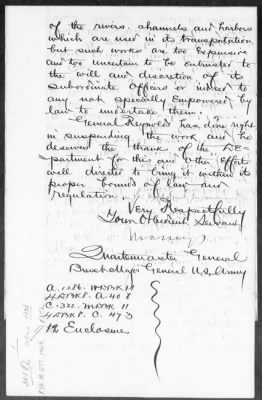 of the rivers, channels and harbors
which are used in its transportation
but such works are too expensive
and too uncertain to be entrusted to
the will and discretion of its
subordinate Officers or indeed to
any not specially empowered by
law to undertake them.
General Reynolds has done right
in suspending the work and he
deserves the thanks of the De-
partment for this and other Effort
well directed to bring it within its
proper bounds of law and
regulation.
Very Respectfully
Your Obedient Servant
Quartermaster General
Brevet Major General U.S. Army
12 Enclosures